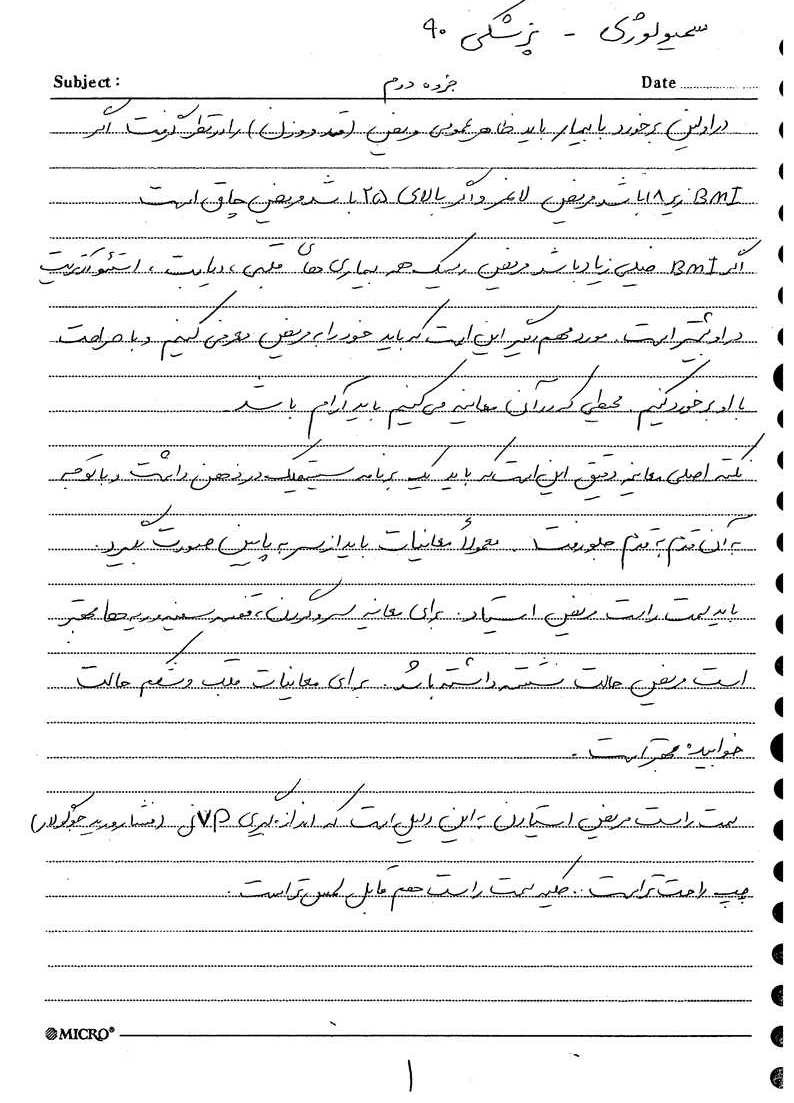 سمیولوژی - پزشکی ۹۰
Subject : جزوه دوم Date
در اولین برخورد با بیمار باید ظاهر عمومی مریض (قد و وزن) را در نظر گرفت اگر
BMI زیر ۱۸ باشد مریض لاغر و اگر بالای ۲۵ باشد مریض چاق است
اگر BMI خیلی زیاد باشد مریض ریسک همه بیماری های قلبی ، دیابت ، استئوآرتریت
در او بیشتر است. مورد مهم دیگر این است که باید خود را به مریض معرفی کنیم و با صراحت
با او برخورد کنیم. محیطی که در آن معاینه می کنیم باید آرام باشد.
نکته اصلی معاینه دقیق این است که باید یک برنامه سیستمیک در ذهن داشت و با توجه
به آن قدم به قدم جلو رفت. معمولاً معاینات باید از سر به پایین صورت بگیرد.
باید سمت راست مریض ایستاد. برای معاینه سر و گردن، قفسه سینه و ریه ها بهتر
است مریض حالت نشسته داشته باشد. برای معاینات قلب و شکم حالت
خوابیده بهتر است.
سمت راست مریض ایستادن به این دلیل است که اندازه گیری JVP (فشار ورید جوگولار)
راحت تر است. سمت راست هم قابل لمس تر است.
MICRO®
۱